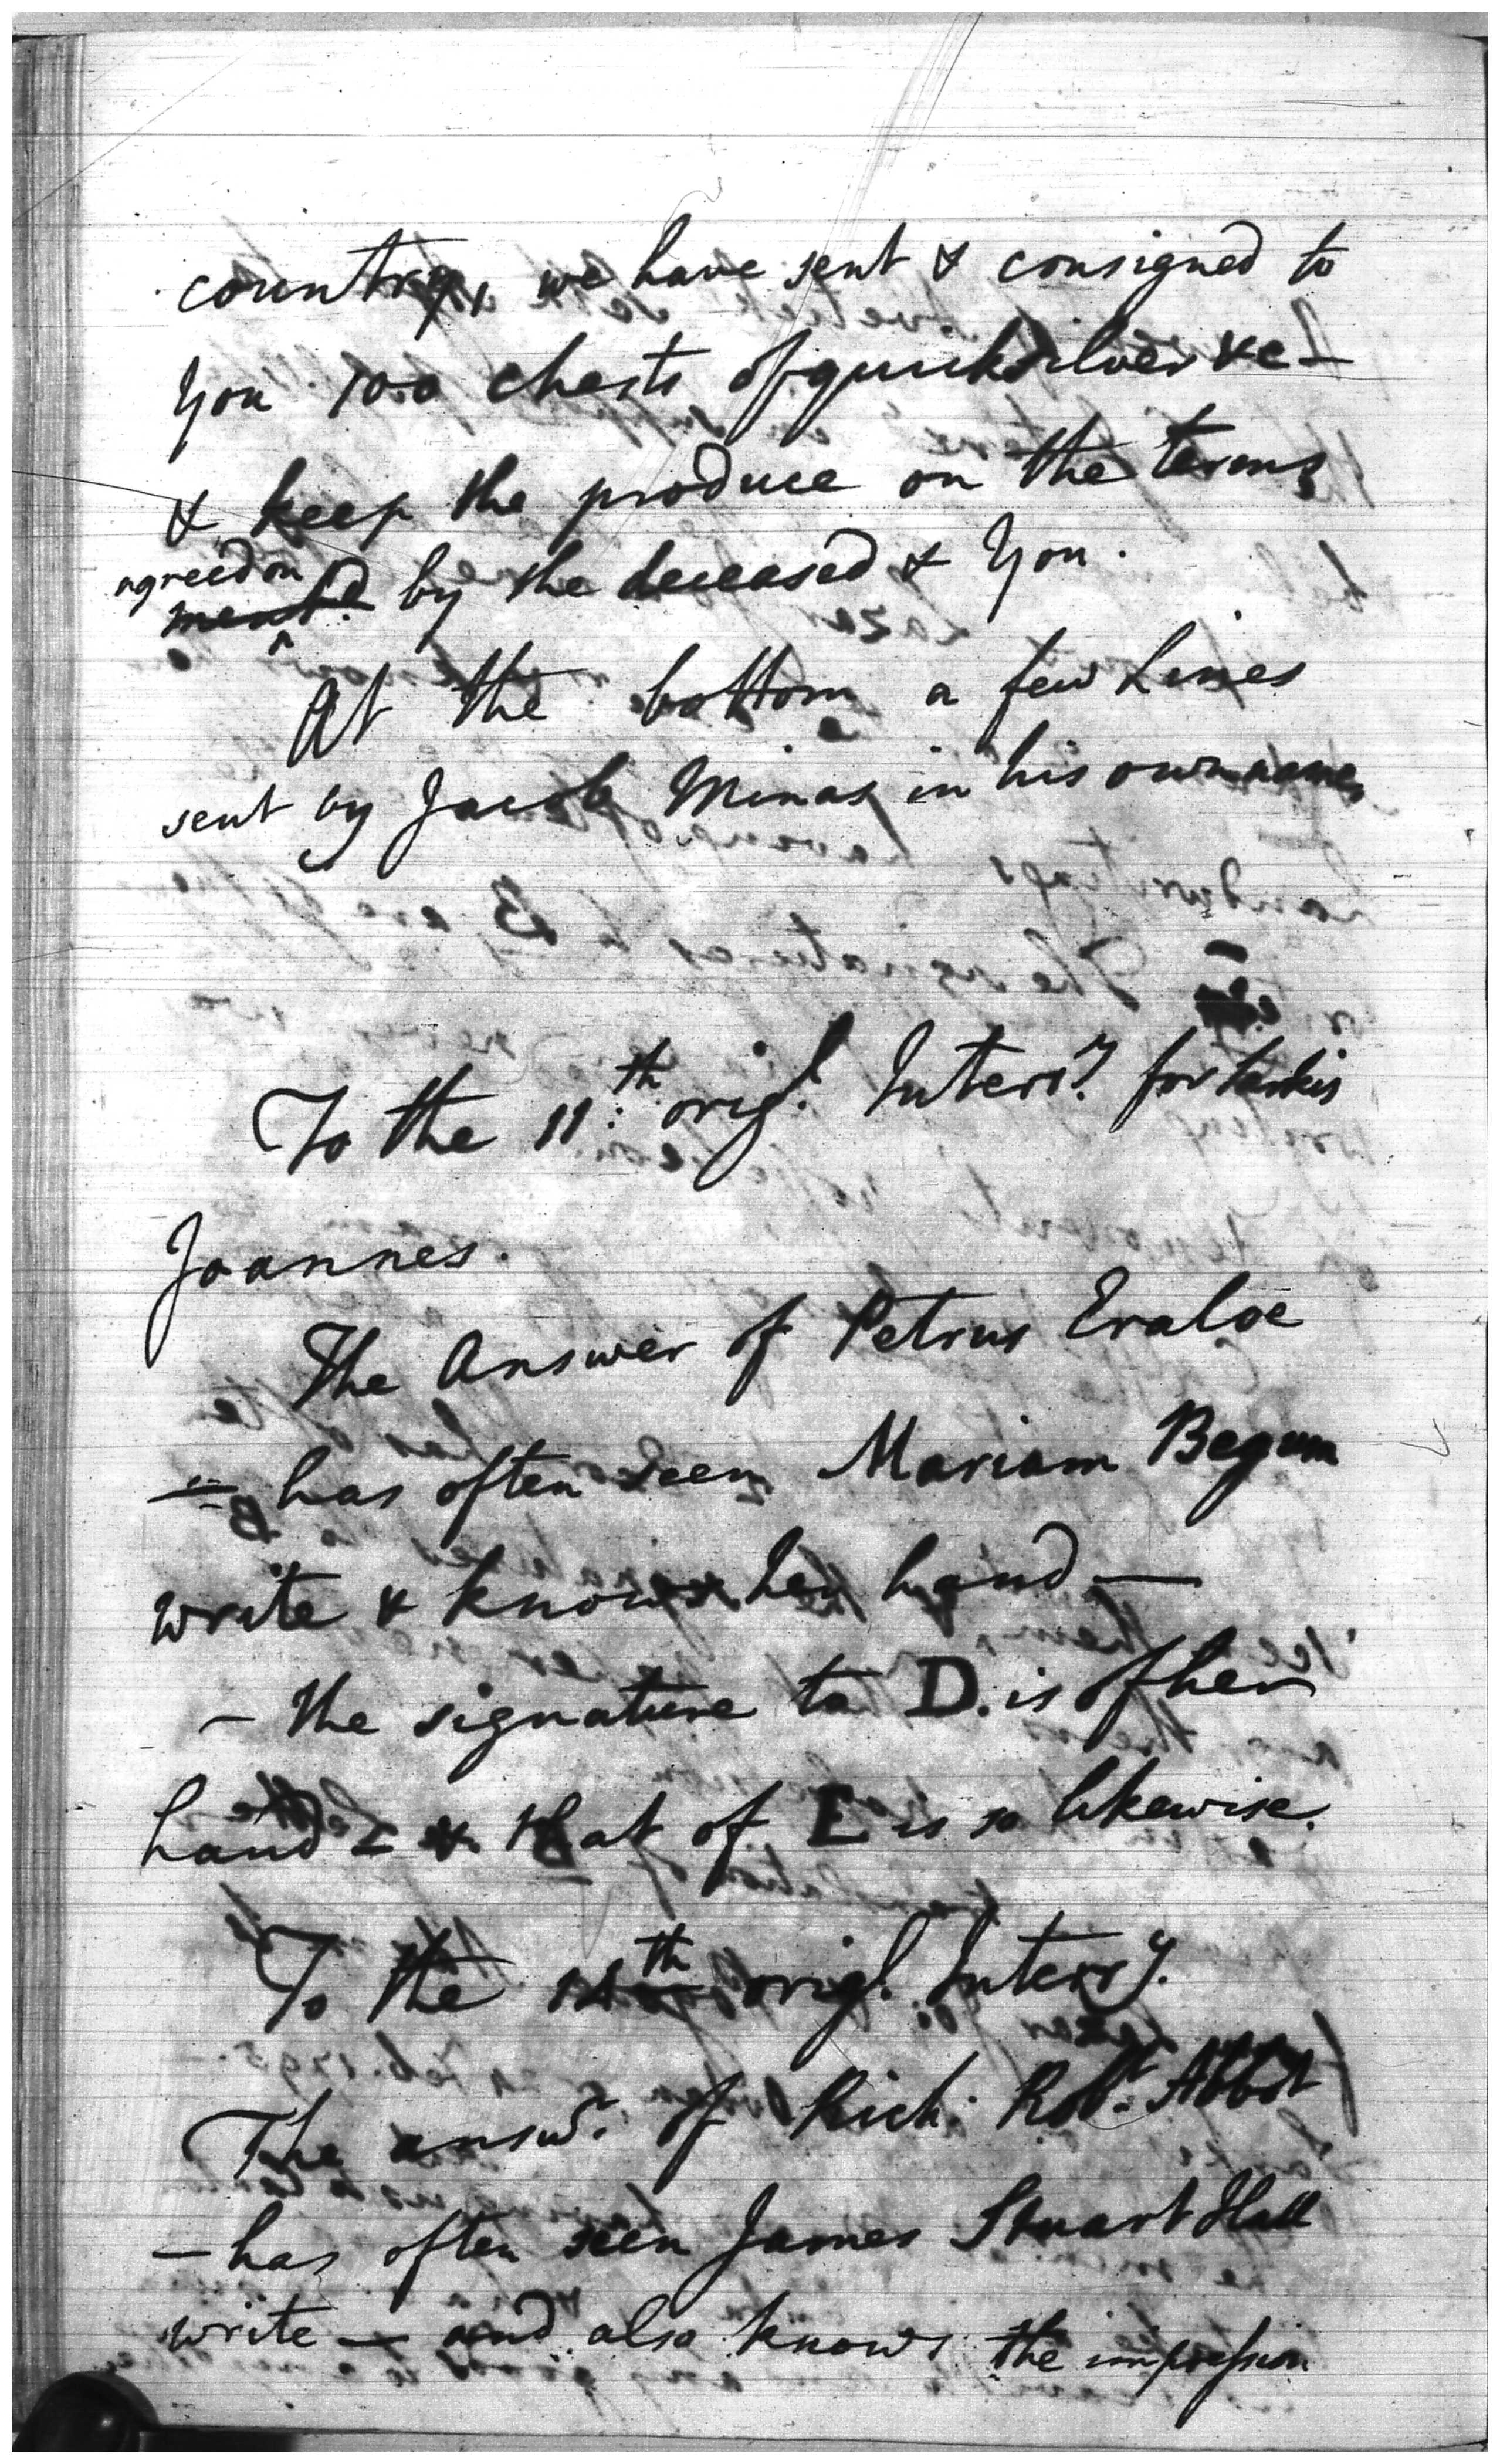 country, we have sent & consigned to
you 100 chests of quicksilver &c —
& keep the produce on the terms
agreed on
ment.d by the deceased & you.
At the bottom a few lines
sent by Jacob Minas in his own name
To the 11th orig.l Interr.y for Sarkis
Joannes.
The Answer of Petrus Eraloe
— has often seen Mariam Begum
write & knows her hand —
— the signature to D. is of her
hand — & that of E is so likewise.
To the 14th orig.l Interry.
The answ.r of Rich. Rob.t Abbot
— has often seen James Stuart Hall
write — and also knows the impression